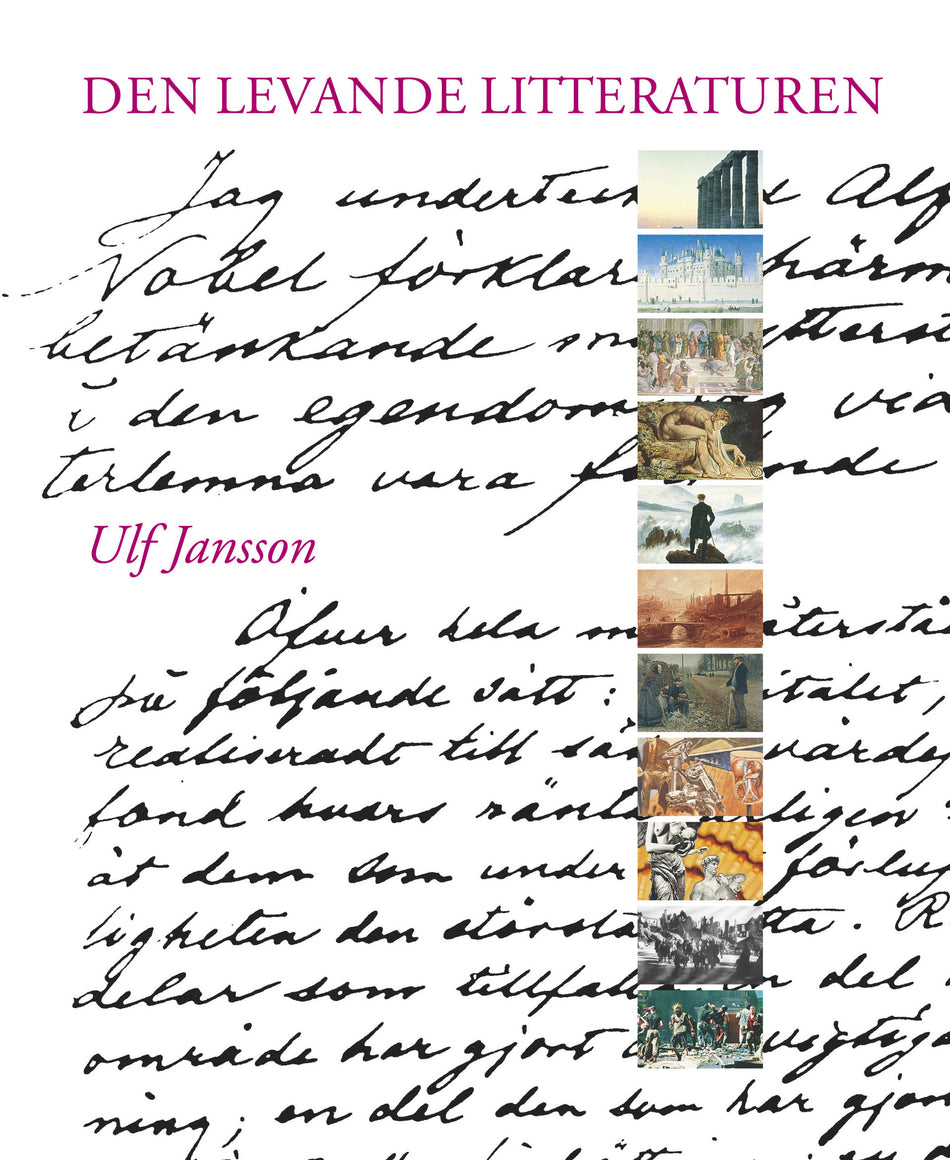 DEN LEVANDE LITTERATUREN
Jag Alf
Nobel förklar härm
betänkande
i den egendom
terlemna vara
Ulf Jansson
Öfver hela återstå
på följande sätt: italet,
realiseradt till värde
fond hvars ränt ligen
åt dem som under förlu
ligheten den störst tta. R
delar som tillfall en del
område har gjort vigtiga
ning; en del den som har gjor